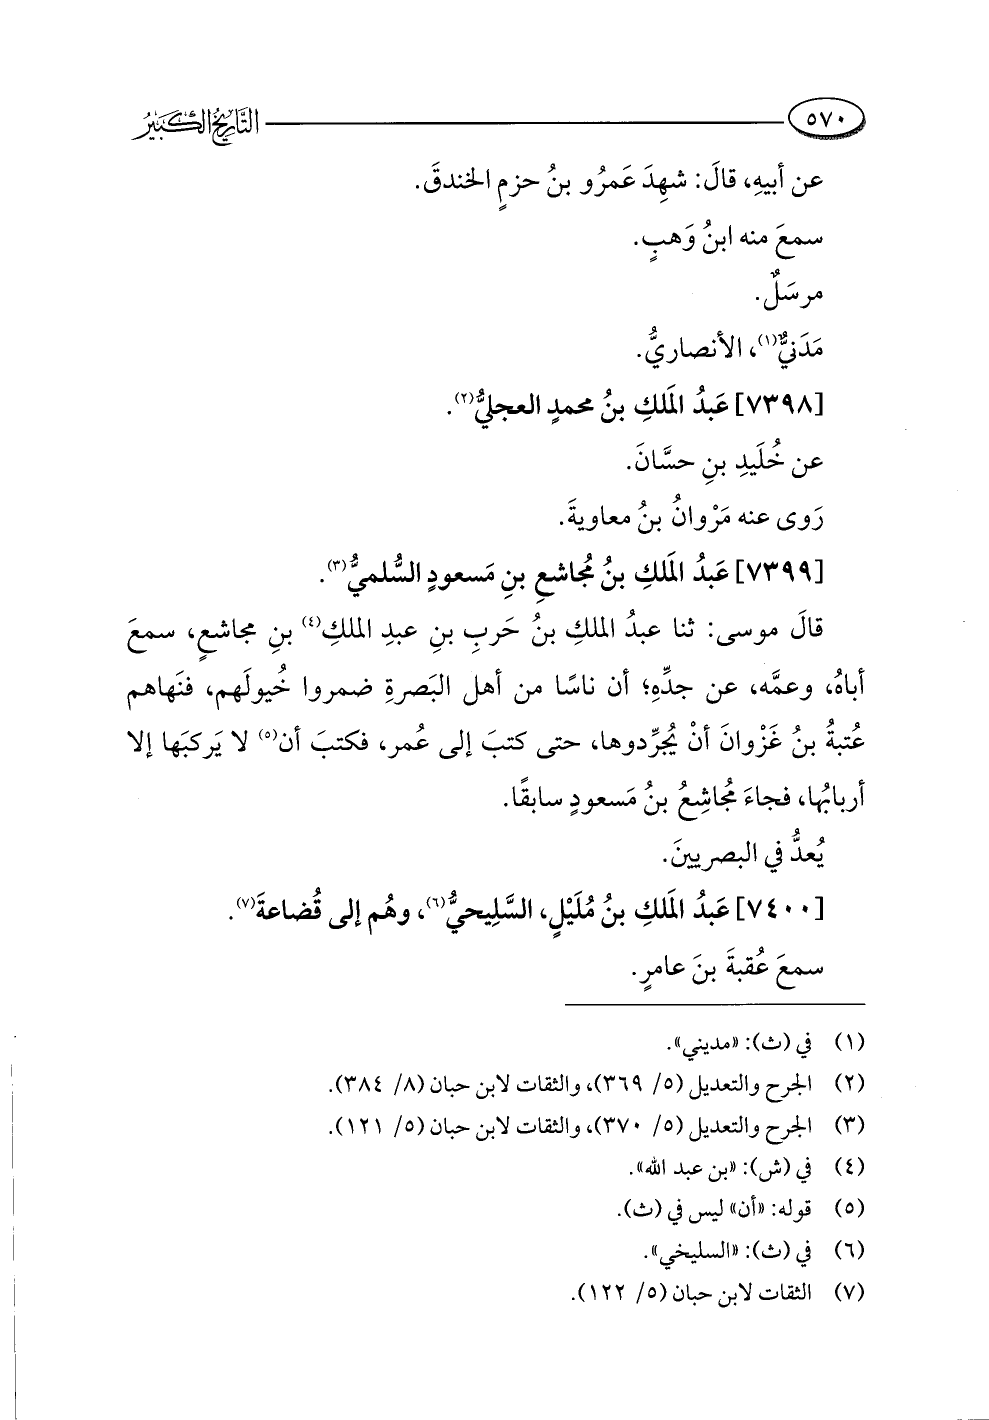 ٥٧٠ التَّارِيخُ الكَبِيرُ
عن أبيهِ، قالَ: شهِدَ عَمرُو بنُ حزمٍ الخندقَ.
سمعَ منه ابنُ وَهبٍ.
مرسَلٌ.
مَدَنيٌّ(١)، الأنصاريُّ.
[٧٣٩٨] عَبدُ المَلكِ بنُ محمدٍ العجليُّ(٢).
عن خُلَيدِ بنِ حسَّانَ.
رَوى عنه مَرْوانُ بنُ معاويةَ.
[٧٣٩٩] عَبدُ المَلكِ بنُ مُجاشعِ بنِ مَسعودٍ السُّلميُّ(٣).
قالَ موسى: ثنا عبدُ الملكِ بنُ حَربِ بنِ عبدِ الملكِ(٤) بنِ مجاشعٍ، سمعَ
أباهُ، وعمَّه، عن جدِّهِ؛ أن ناسًا من أهل البَصرةِ ضمروا خُيولَهم، فنَهاهم
عُتبةُ بنُ غَزْوانَ أنْ يُجرِّدوها، حتى كتبَ إلى عُمر، فكتبَ أن(٥) لا يَركبَها إلا
أربابُها، فجاءَ مُجاشِعُ بنُ مَسعودٍ سابقًا.
يُعدُّ في البصريينَ.
[٧٤٠٠] عَبدُ المَلكِ بنُ مُلَيْلٍ، السَّلِيحيُّ(٦)، وهُم إلى قُضاعةَ(٧).
سمعَ عُقبةَ بنَ عامرٍ.
(١) في (ث): «مديني».
(٢) الجرح والتعديل (٥/ ٣٦٩)، والثقات لابن حبان (٨/ ٣٨٤).
(٣) الجرح والتعديل (٥/ ٣٧٠)، والثقات لابن حبان (٥/ ١٢١).
(٤) في (ش): «بن عبد الله».
(٥) قوله: «أن» ليس في (ث).
(٦) في (ث): «السليخي».
(٧) الثقات لابن حبان (٥/ ١٢٢).